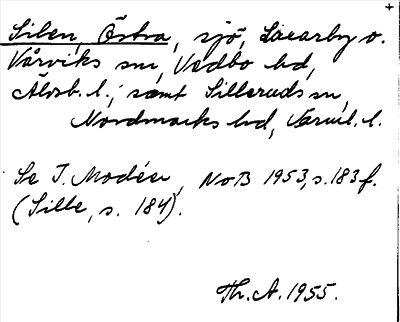 Silen, Östra, sjö, Laxarby o.
Vårviks sn, Vedbo hd,
Älvsb. l.; samt Silleruds sn,
Nordmarks hd, Värml. l.
Se I. Modéer, NoB 1953, s. 183 f.
(Sille, s. 184).
Th. A. 1955.